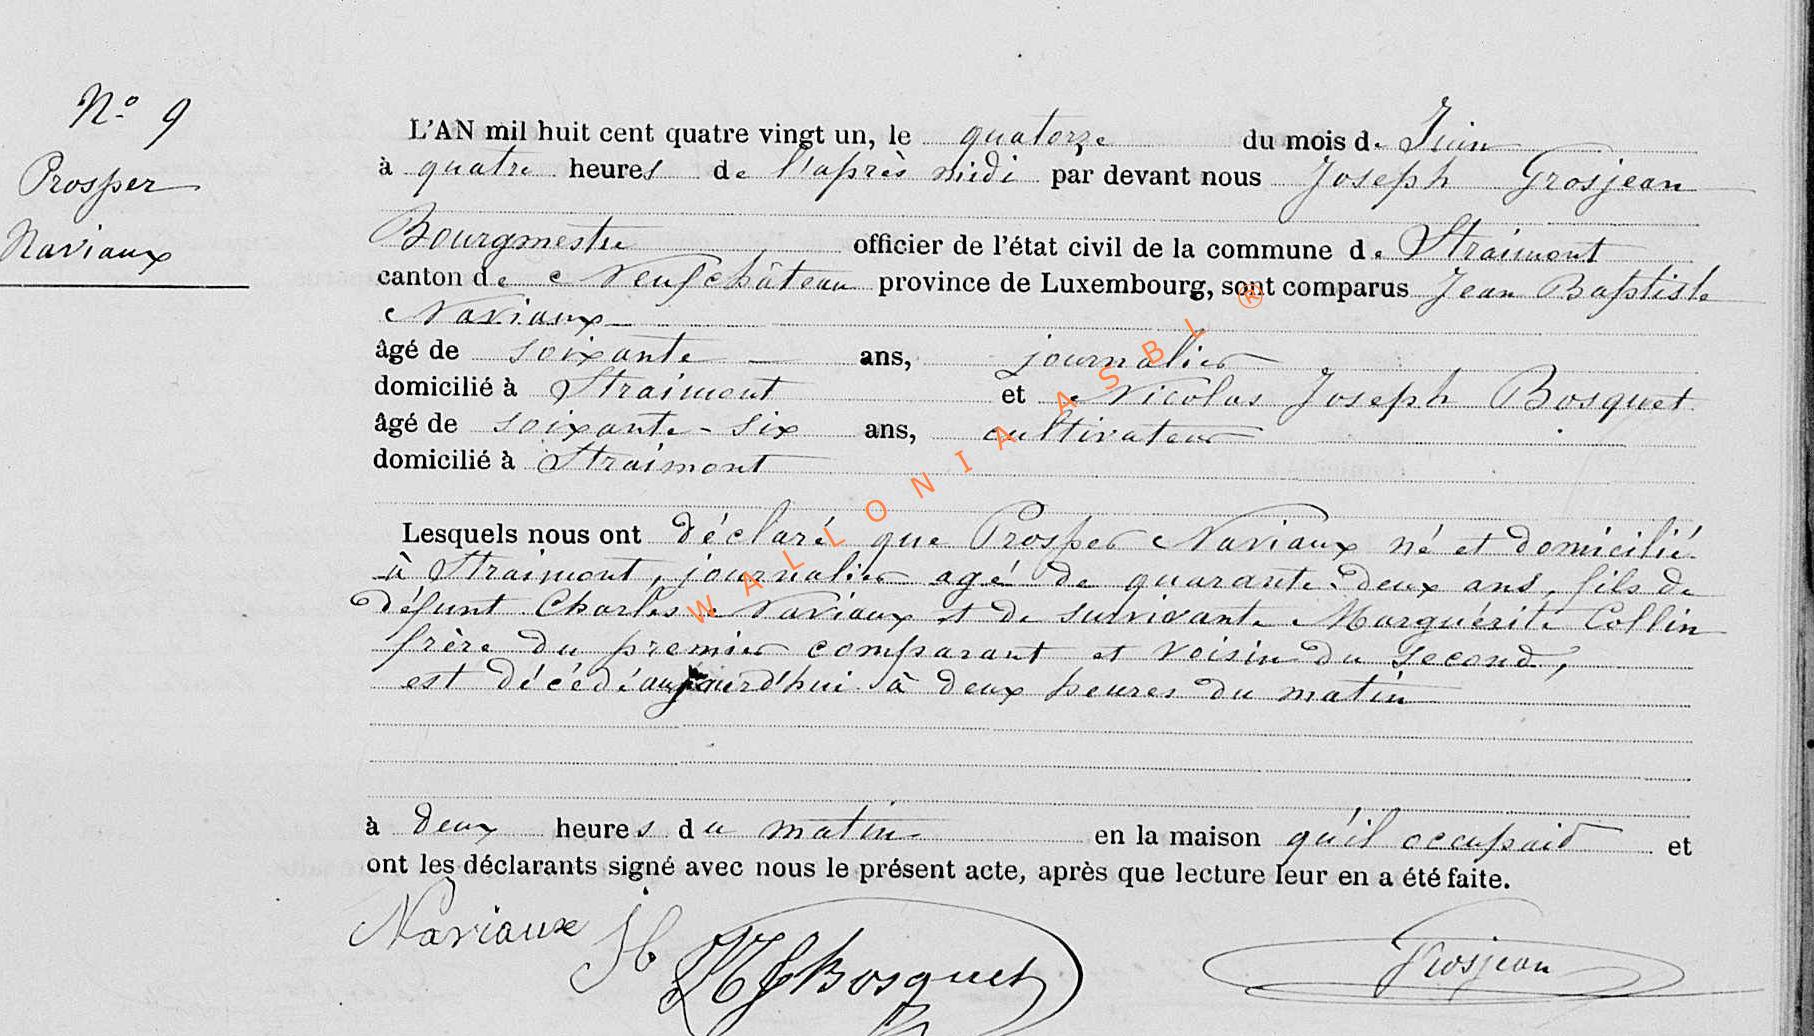 N° 9
Prosper
Naviaux
L'AN mil huit cent quatre vingt un, le quatorze du mois de Juin
à quatre heures de l'après midi par devant nous Joseph Grosjean
Bourgmestre officier de l'état civil de la commune de Straimont
canton de Neufchâteau province de Luxembourg, sont comparus Jean Baptiste
Naviaux
âgé de soixante ans, journalier
domicilié à Straimont et Nicolas Joseph Bosquet
âgé de soixante-six ans, cultivateur
domicilié à Straimont
Lesquels nous ont déclaré que Prosper Naviaux né et domicilié
à Straimont, journalier agé de quarante-deux ans, fils de
défunt Charles Naviaux et de survivante Marguérite Collin
frère du premier comparant et voisin du second,
est décédé aujourd'hui à deux heures du matin
à deux heures du matin en la maison qu'il occupait et
ont les déclarants signé avec nous le présent acte, après que lecture leur en a été faite.
Naviaux Bosquet Grosjean
WALLONIA ASBL ®